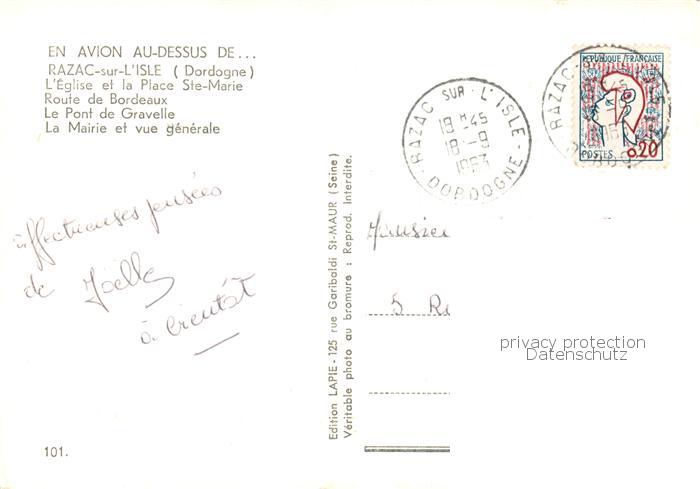 EN AVION AU-DESSUS DE...
RAZAC-sur-L'ISLE ( Dordogne )
L'Église et la Place Ste-Marie
Route de Bordeaux
Le Pont de Gravelle
La Mairie et vue générale
affectueuses pensées
de Joëlle
à bientôt
101.
Edition LAPIE - 125 rue Garibaldi St-MAUR (Seine)
Véritable photo au bromure : Reprod. Interdite.
RAZAC SUR L'ISLE
19 H 45
18 - 9
1963
DORDOGNE
RAZAC
REPUBLIQUE FRANÇAISE
POSTES 0,20
5 R
privacy protection
Datenschutz